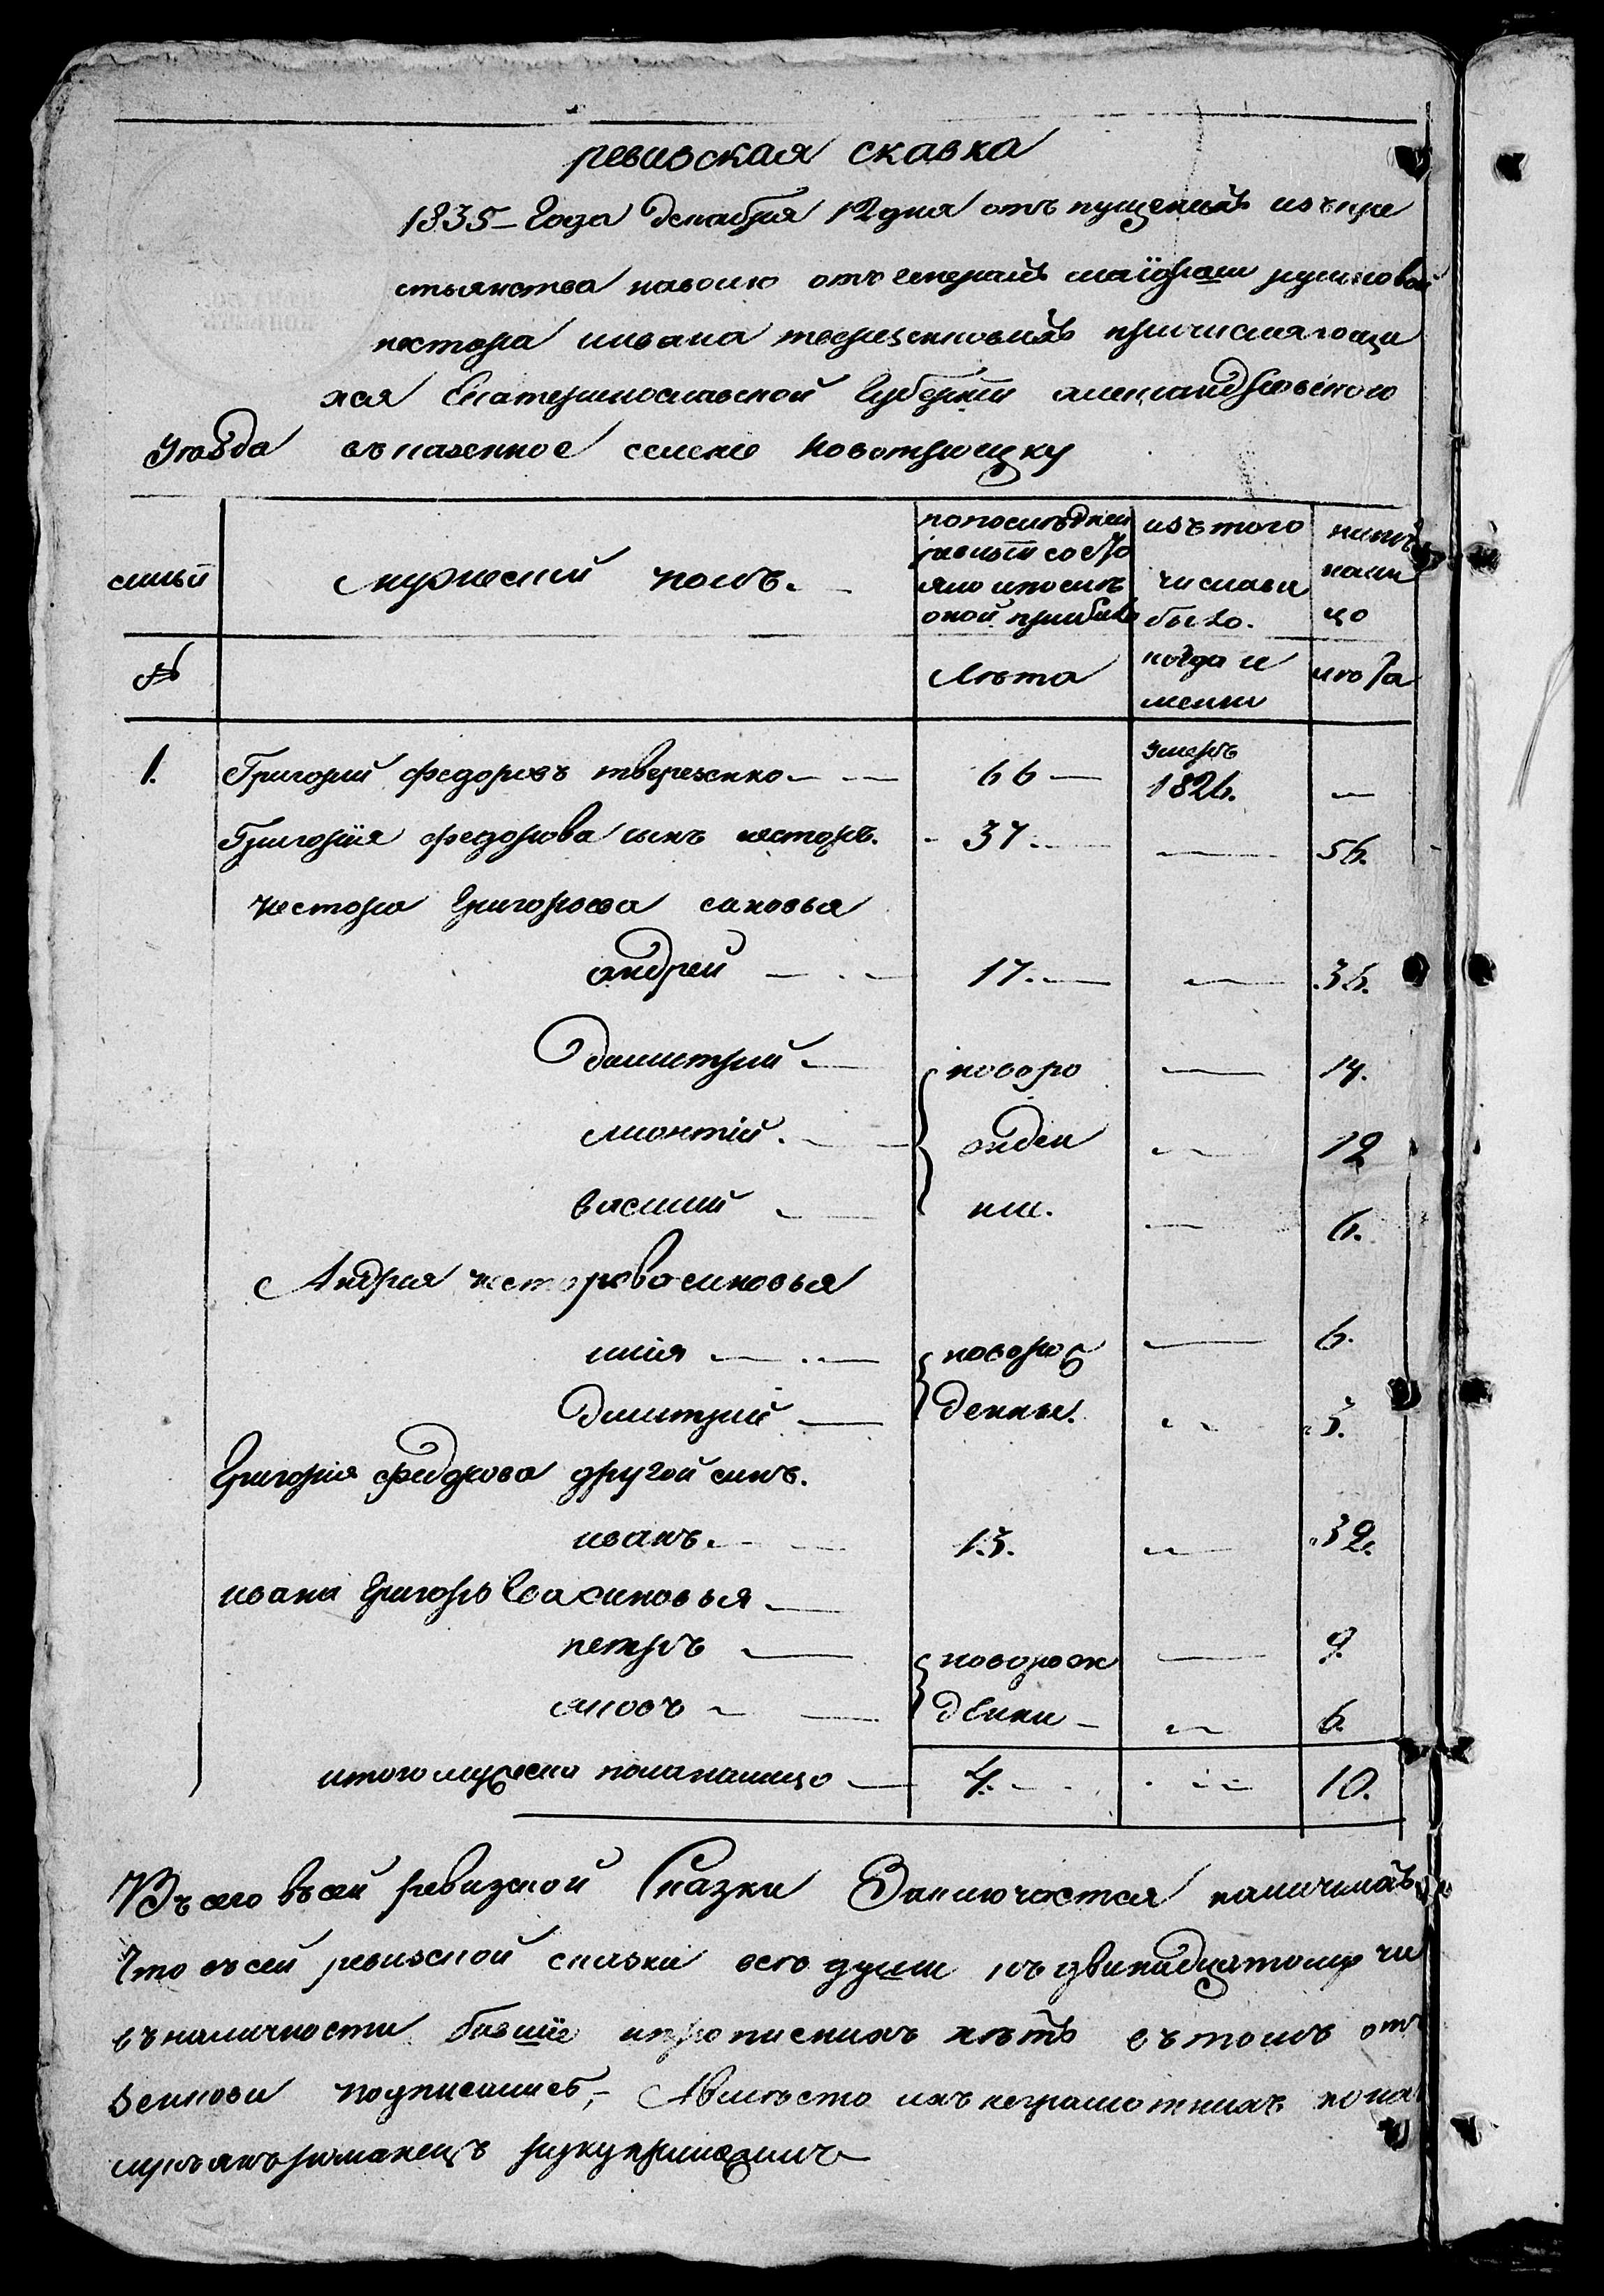 ревизская сказка
1835 – Года декабря 12 дня отъ пущенныхъ изъ кре
стьянства наволю отъ генералъ маіорши
нестора ивана терещенковыхъ причисляющи
хся Екатеринославской Губерніи александровского
уѣзда въ казенное селеніе новотроицку
семьи
мужеский полъ.
попоследней ревизіи состо яло ипослѣ оной прибыло
изъ того числа вы было.
нынѣ нали цо
№
Лѣта
когда и менно
лѣта
1. Григорий федоровъ терезенко — — 66 — умеръ 1826. —
Григорія федорова сынъ несторъ. - 37. — — 56.
нестора Григорьева сыновья
андрей — . — 17. — — 36.
дмитрий — новоро — 14.
леонтій. — жден — 12
василий — ние. — 6.
Андрея несторова синовья
илія — . — новорож — 6.
дмитрий — денные. — 5.
Григорія федорова другой синъ.
иванъ. — 13. — 32.
ивана Григорьева синовья —
петръ — новорож — 9.
яковъ — — денни — — 6.
итого мужеска пола налицо — 4. — . — 10.
Въсего въсей ревизской Сказки Заключается наличныхъ
Что въсей ревизской сказки всѣ души къ двѣнадцатому чи
въналичности бывшие ипрописныхъ нѣтъ вътомъ
подписались, Авмѣсто ихъ неграмотныхъ
романецъ рукуприложилъ